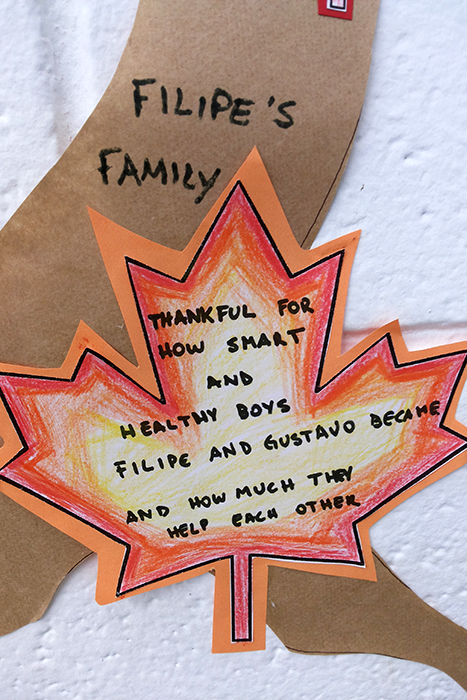 FILIPE'S
FAMILY
THANKFUL FOR
HOW SMART
AND
HEALTHY BOYS
FILIPE AND GUSTAVO BECAME
AND HOW MUCH THEY
HELP EACH OTHER